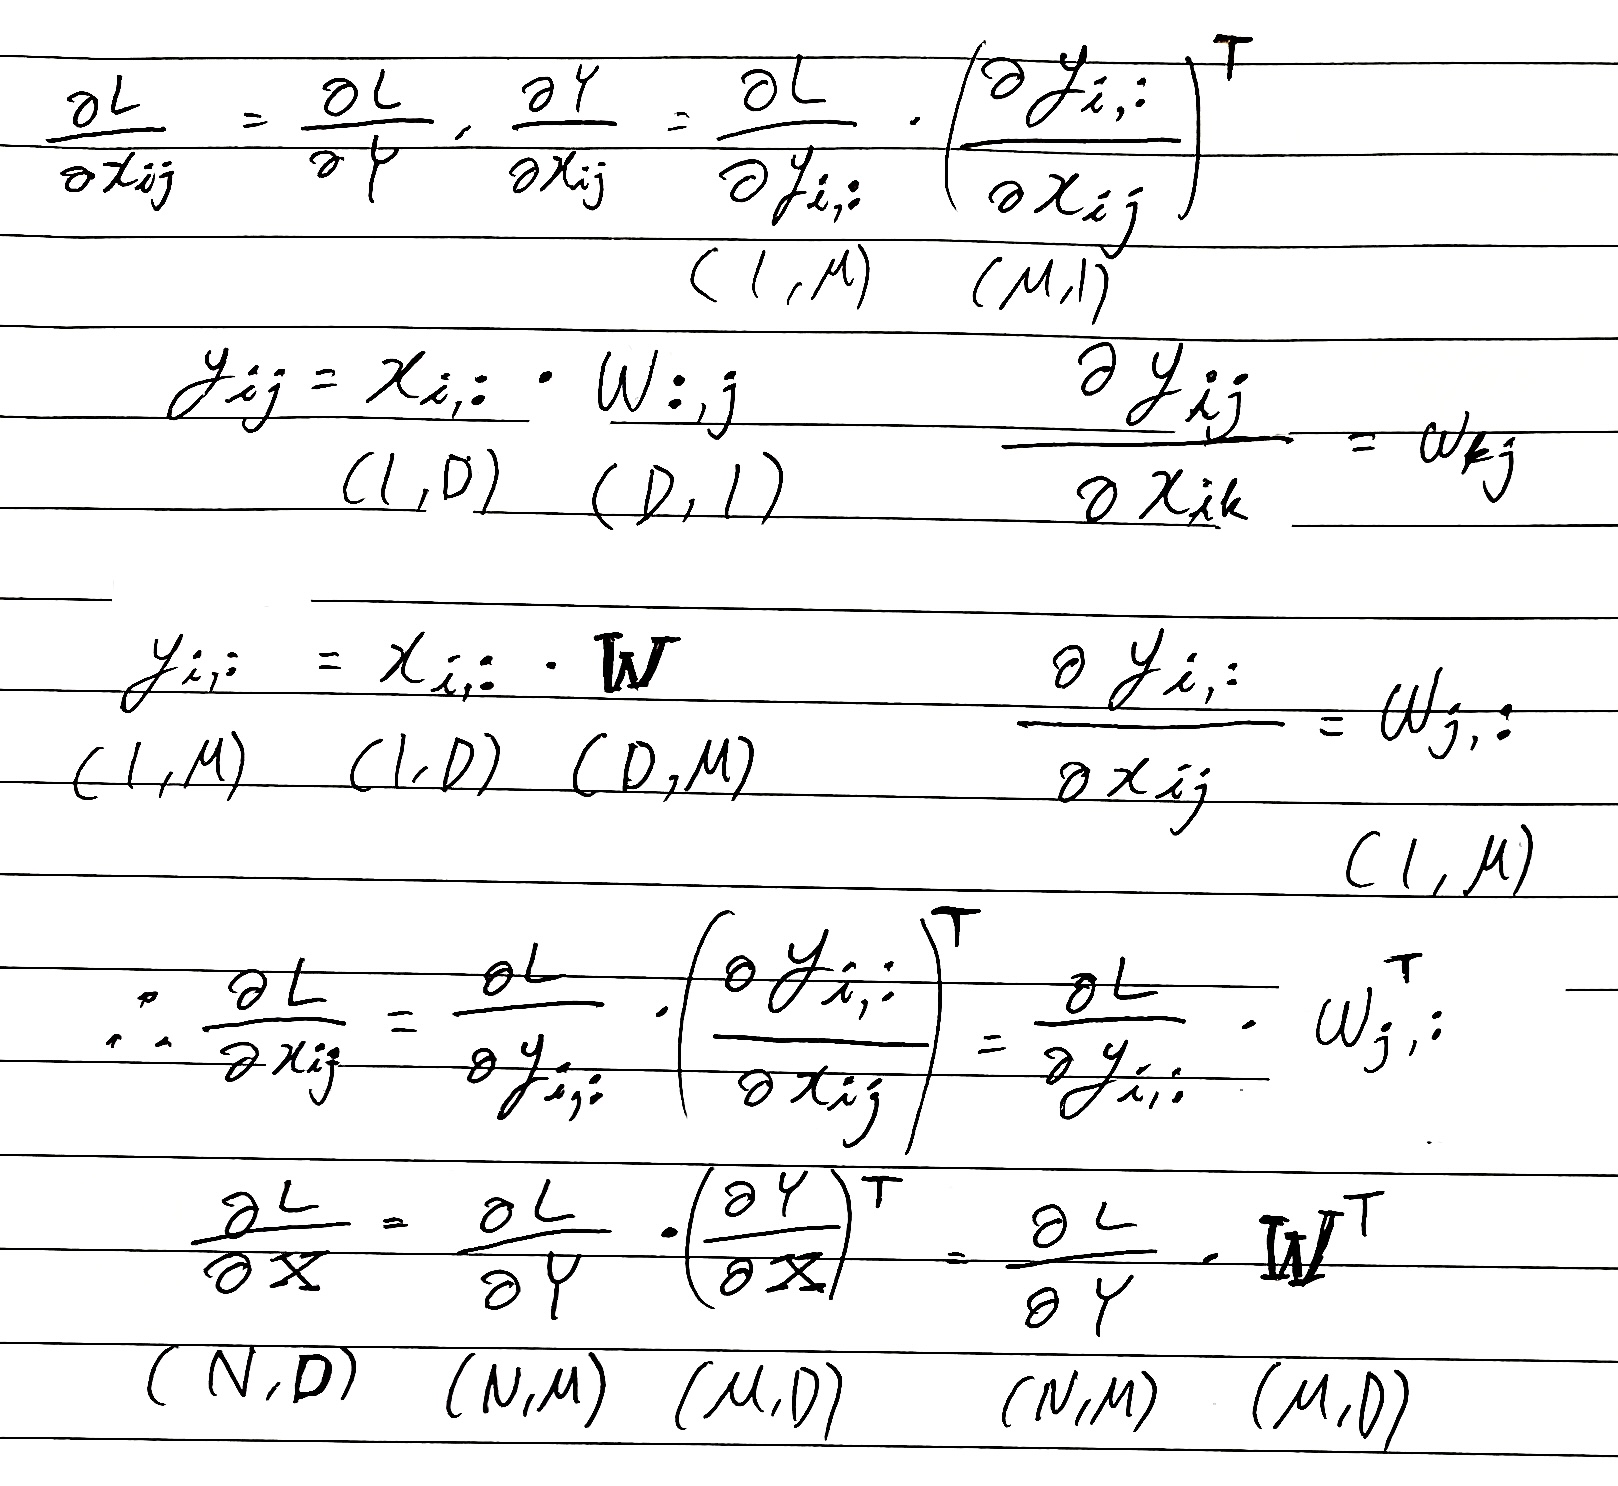 ∂L/∂x_{ij} = ∂L/∂Y · ∂Y/∂x_{ij} = ∂L/∂y_{i,:} · (∂y_{i,:}/∂x_{ij})^T
(1,M) (M,1)
y_{ij} = x_{i,:} · W_{:,j} ∂y_{ij}/∂x_{ik} = w_{kj}
(1,D) (D,1)
y_{i,:} = x_{i,:} · W ∂y_{i,:}/∂x_{ij} = w_{j,:}
(1,M) (1,D) (D,M)
(1,M)
∴ ∂L/∂x_{ij} = ∂L/∂y_{i,:} · (∂y_{i,:}/∂x_{ij})^T = ∂L/∂y_{i,:} · w_{j,:}^T
∂L/∂X = ∂L/∂Y · (∂Y/∂X)^T = ∂L/∂Y · W^T
(N,D) (N,M) (M,D) (N,M) (M,D)